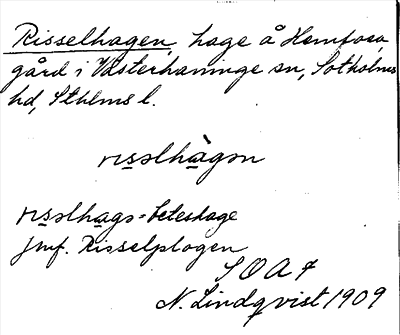 Risselhagen, hage å Hemfosa
gård i Västerhaninge sn, Sotholms
hd, Sthlms l.
rɪsəlhàgən
rɪsəlhags-beteshage
jmf. Risselplogen
S O A F
N. Lindqvist 1909